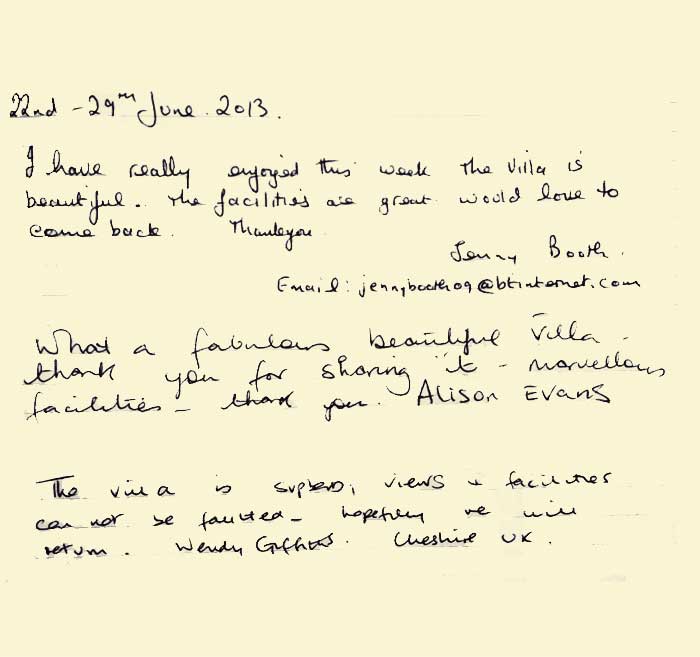 22nd - 29th June. 2013.
I have really enjoyed this week the Villa is
beautiful. The facilities are great would love to
come back. Thankyou
Jenny Booth.
Email: jennybooth09@btinternet.com
What a fabulous beautiful Villa -
thank you for sharing it - marvellous
facilities - thank you. Alison Evans
The villa is superb, views + facilities
can not be faulted - hopefully we will
return. Wendy Cheshire UK.